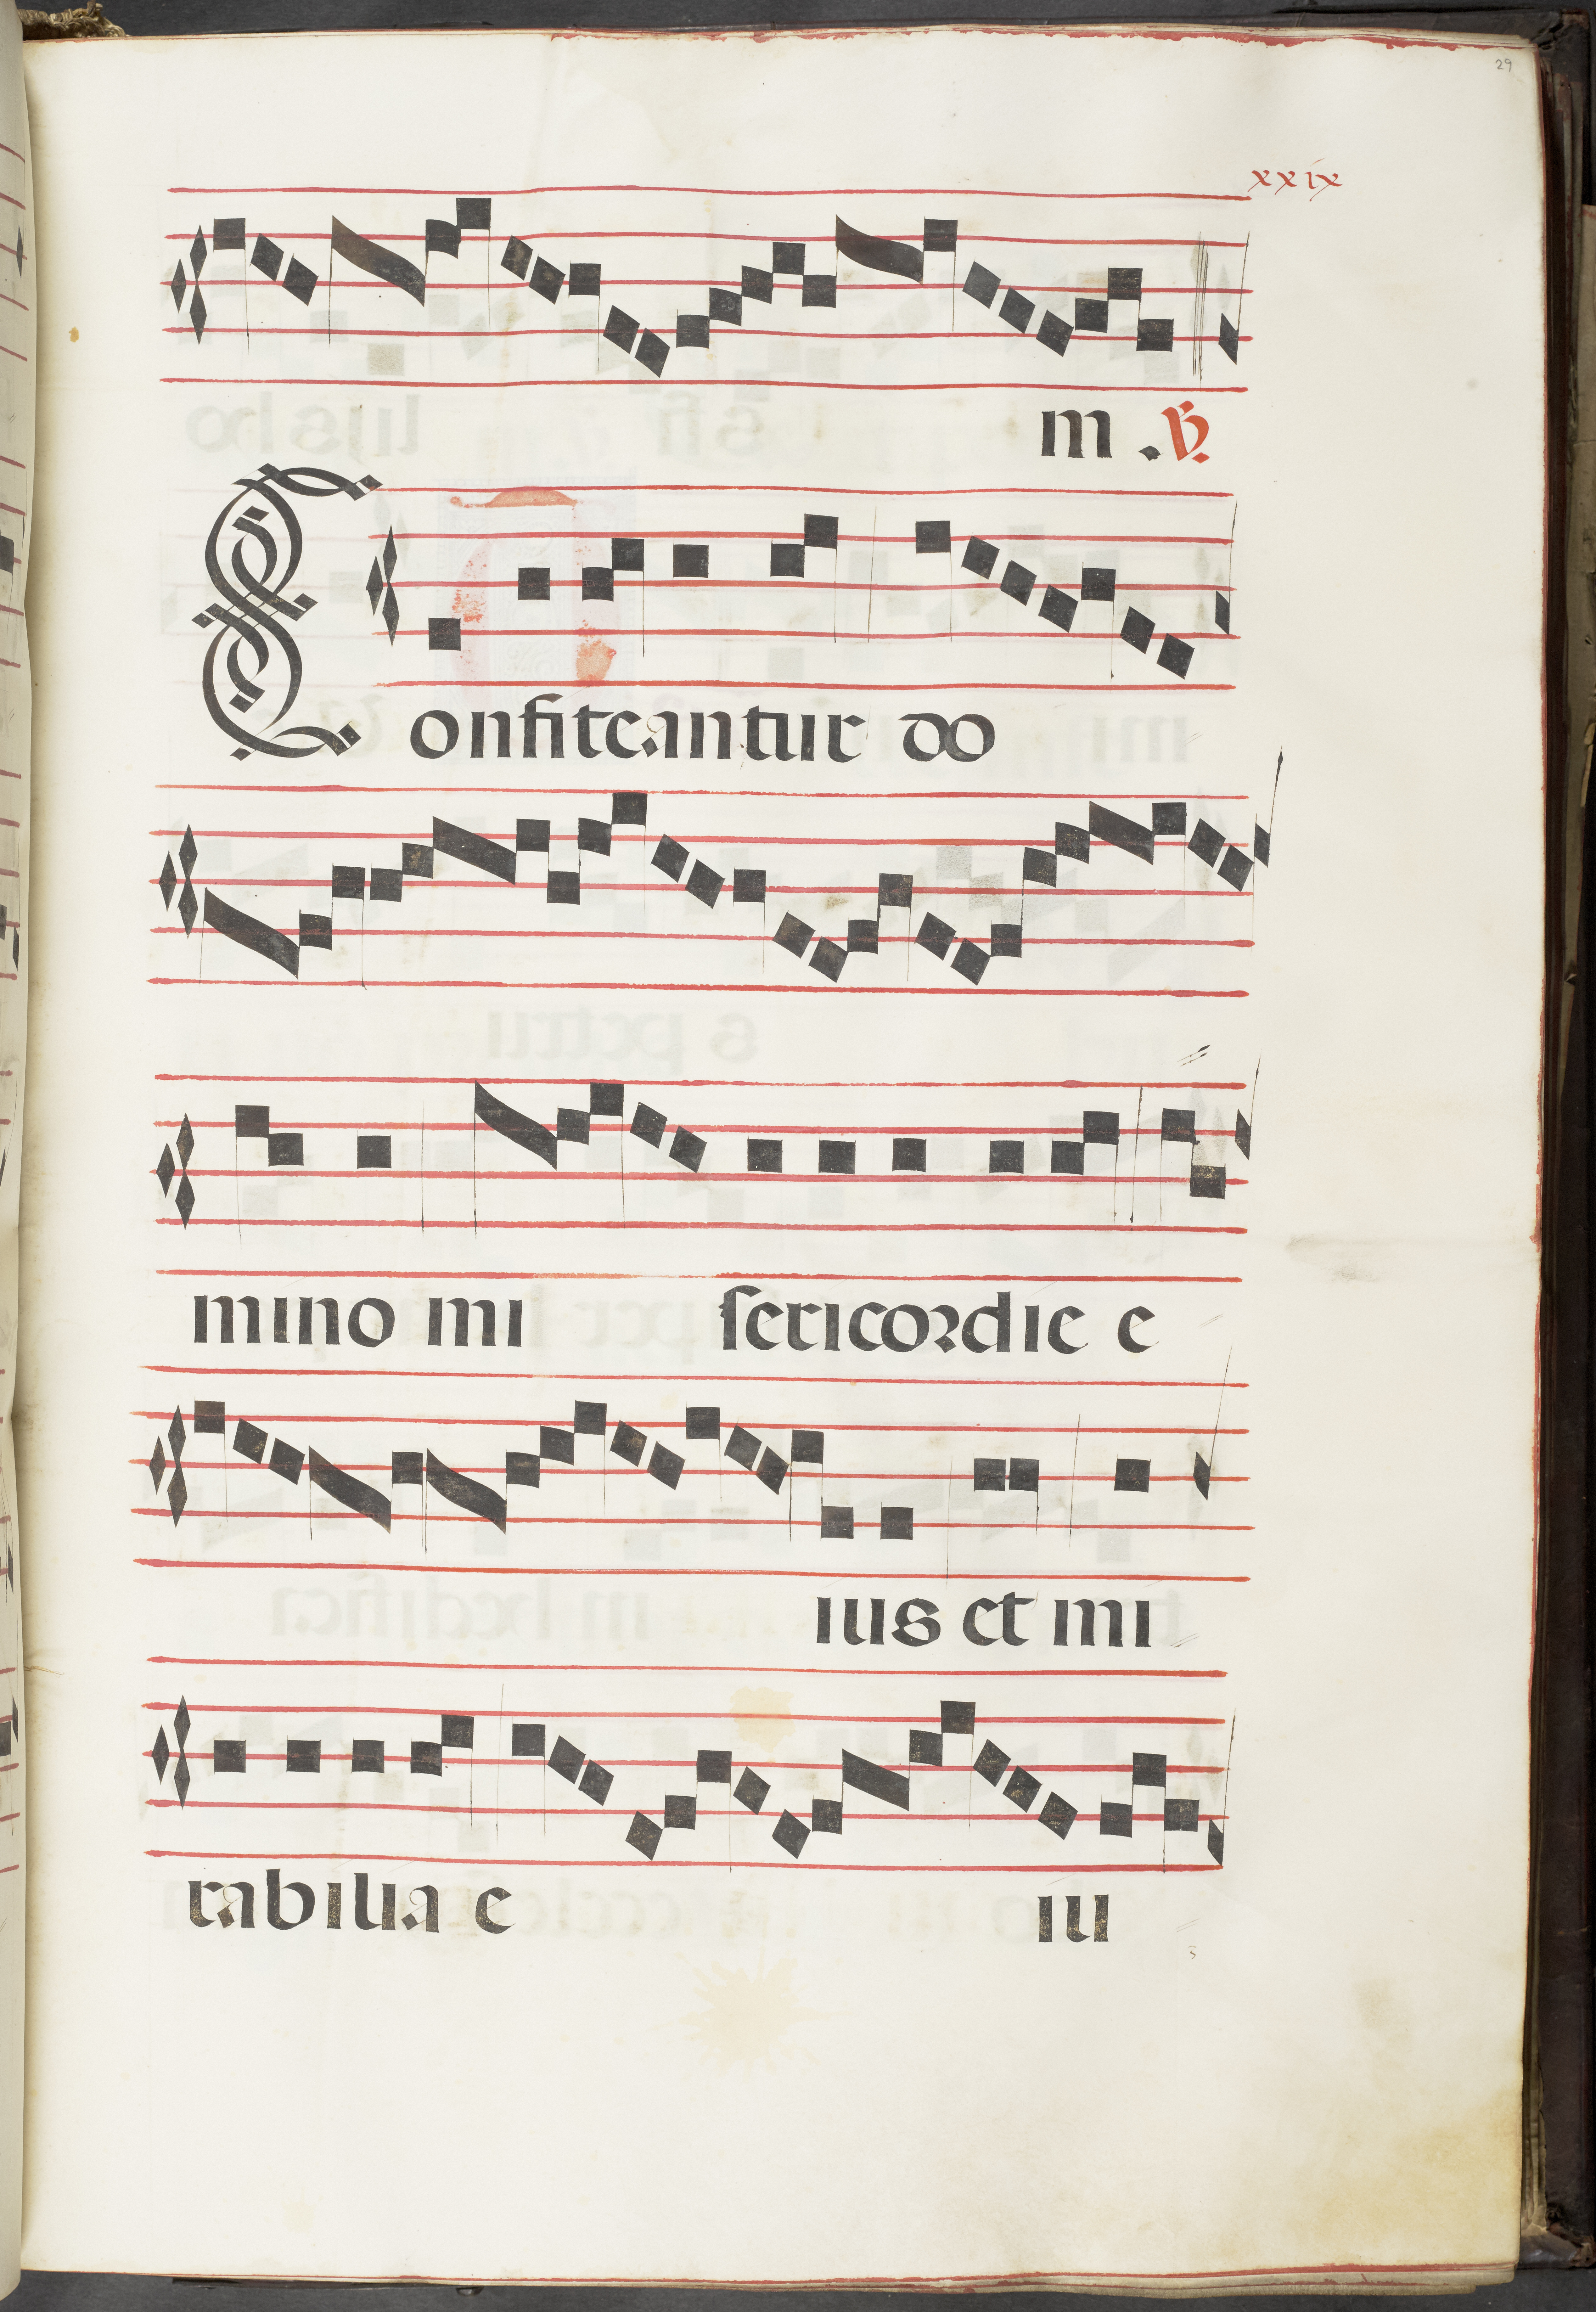 29
xxix
m . ℣
Confiteantur do
mino mi sericordie e
ius et mi
rabilia e iu